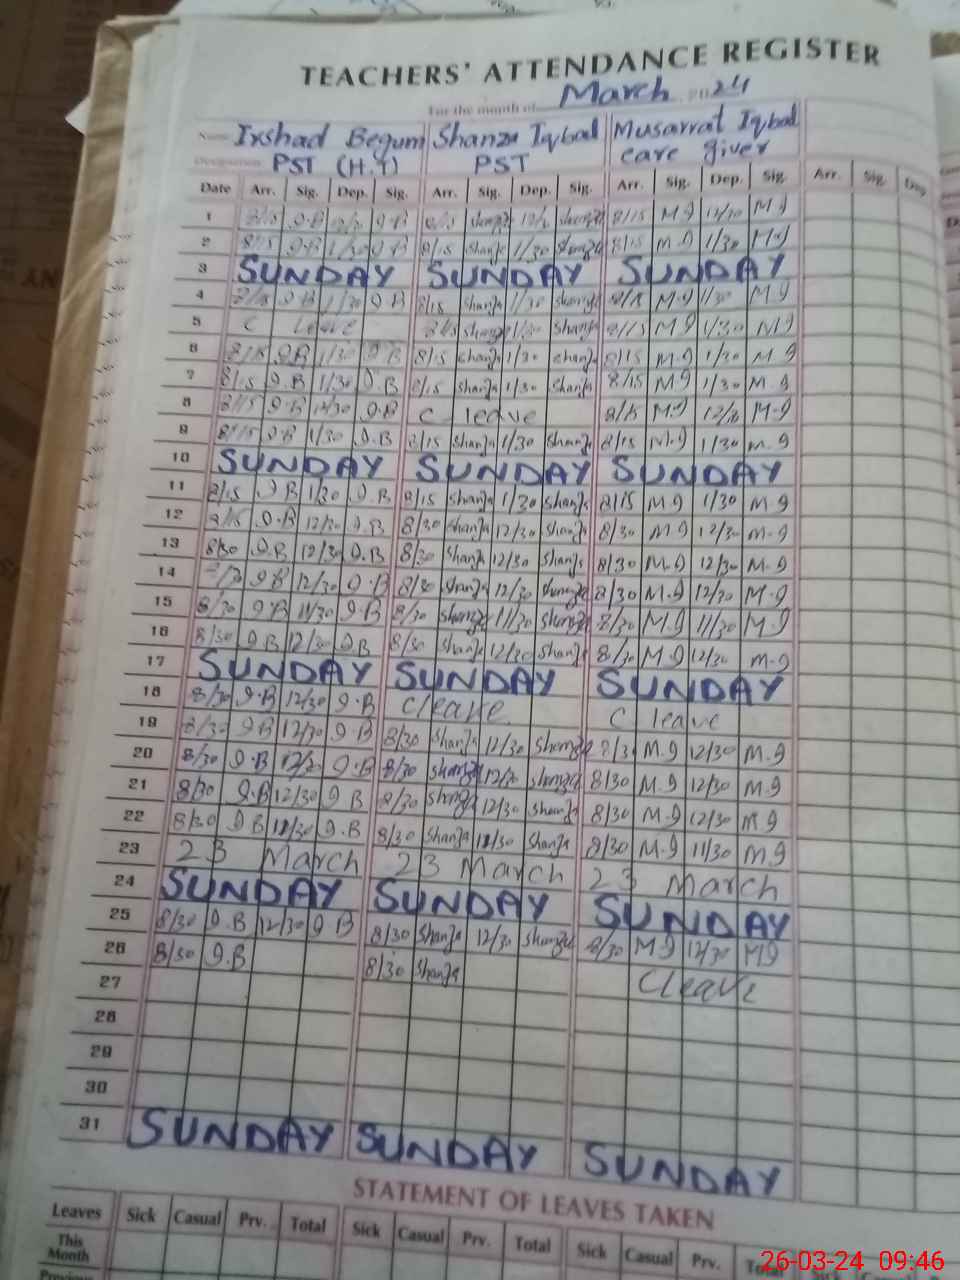 TEACHERS' ATTENDANCE REGISTER
For the month of March 2024
Name Irshad Begum Shanza Iqbal Musarrat Iqbal
Designation PST (H.T) PST care giver
Date Arr. Sig. Dep. Sig. Arr. Sig. Dep. Sig. Arr. Sig. Dep. Sig. Arr. Sig. Dep
1 8/15 I.B I.B 8/15 Shanza Shanza 8/15 M.I 12/30 M.I
2 8/15 I.B 1/30 I.B 8/15 Shanza 1/30 Shanza 8/15 M.I 1/30 M.I
3 SUNDAY SUNDAY SUNDAY
4 8/15 I.B 1/30 I.B 8/15 Shanza 1/30 Shanza 8/15 M.I 1/30 M.I
5 C leave 8/15 Shanza 1/30 Shanza 8/15 M.I 1/30 M.I
6 8/15 I.B 1/30 I.B 8/15 Shanza 1/30 Shanza 8/15 M.I 1/30 M.I
7 8/15 I.B 1/30 I.B 8/15 Shanza 1/30 Shanza 8/15 M.I 1/30 M.I
8 8/15 I.B 12/30 I.B C leave 8/15 M.I 12/30 M.I
9 8/15 I.B 1/30 I.B 8/15 Shanza 1/30 Shanza 8/15 M.I 1/30 M.I
10 SUNDAY SUNDAY SUNDAY
11 8/15 I.B 1/30 I.B 8/15 Shanza 1/30 Shanza 8/15 M.I 1/30 M.I
12 I.B 12/30 I.B 8/30 Shanza 12/30 Shanza 8/30 M.I 12/30 M.I
13 8/30 I.B 12/30 I.B 8/30 Shanza 12/30 Shanza 8/30 M.I 12/30 M.I
14 I.B 12/30 I.B 8/30 Shanza 12/30 Shanza 8/30 M.I 12/30 M.I
15 8/30 I.B 11/30 I.B 8/30 Shanza 11/30 Shanza 8/30 M.I 11/30 M.I
16 8/30 I.B 12/30 I.B 8/30 Shanza 12/30 Shanza 8/30 M.I 12/30 M.I
17 SUNDAY SUNDAY SUNDAY
18 8/30 I.B 12/30 I.B C leave C leave
19 8/30 I.B 12/30 I.B 8/30 Shanza 12/30 Shanza 8/30 M.I 12/30 M.I
20 8/30 I.B 12/30 I.B 8/30 Shanza 12/30 Shanza 8/30 M.I 12/30 M.I
21 8/30 I.B 12/30 I.B 8/30 Shanza 12/30 Shanza 8/30 M.I 12/30 M.I
22 8/30 I.B 11/30 I.B 8/30 Shanza 11/30 Shanza 8/30 M.I 11/30 M.I
23 23 March 23 March 23 March
24 SUNDAY SUNDAY SUNDAY
25 8/30 I.B 12/30 I.B 8/30 Shanza 12/30 Shanza 8/30 M.I 12/30 M.I
26 8/30 I.B 8/30 Shanza C leave
27
28
29
30
31 SUNDAY SUNDAY SUNDAY
STATEMENT OF LEAVES TAKEN
Leaves Sick Casual Prv. Total Sick Casual Prv. Total Sick Casual Prv. Total
This Month
Previous
26-03-24 09:46